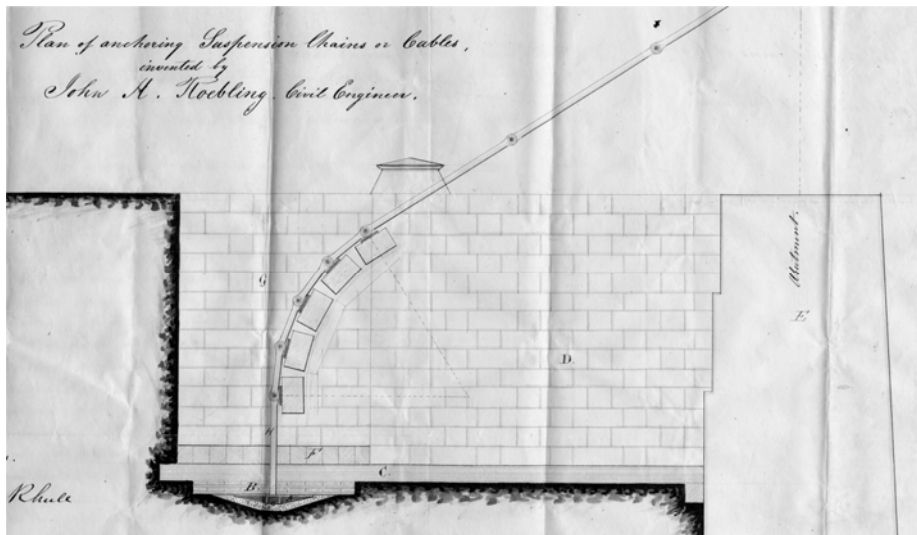 Plan of anchoring Suspension Chains or Cables,
invented by
John A. Roebling. Civil Engineer.
Abutment.
G
E
D.
H
F
C.
B
Rhule